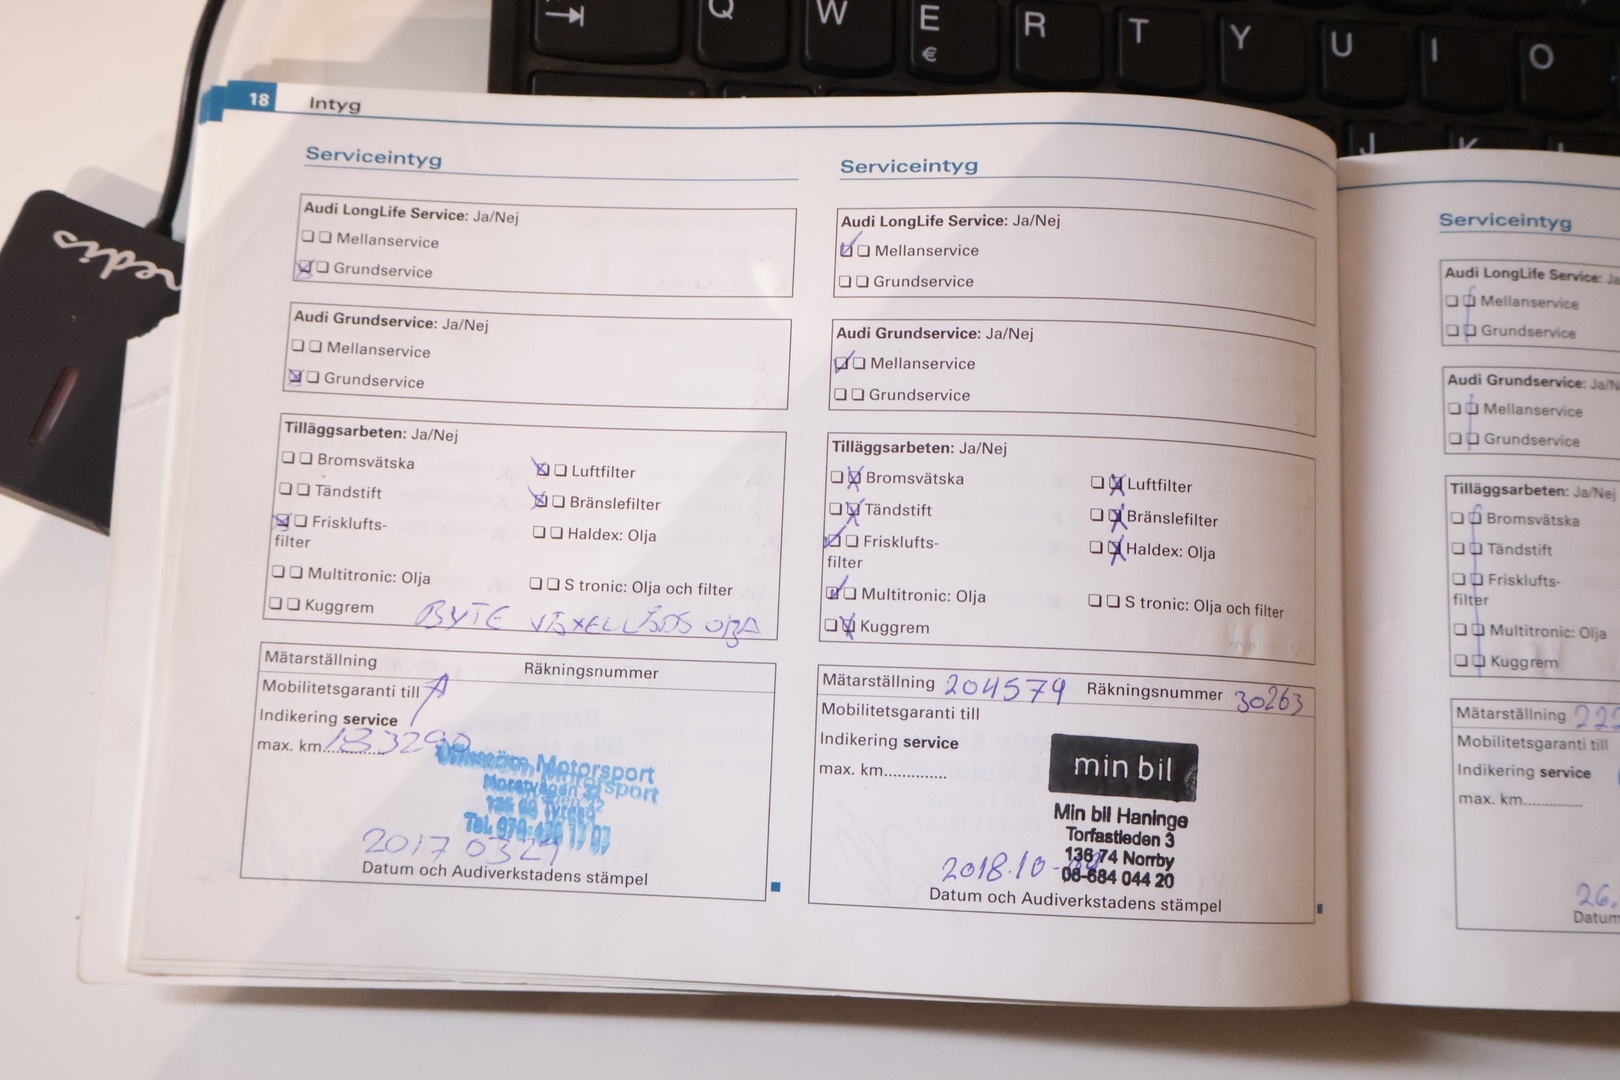 Q W E R T Y U I O
€
J K L
nedis
18 Intyg
Serviceintyg
Audi LongLife Service: Ja/Nej
Mellanservice
Grundservice
Audi Grundservice: Ja/Nej
Mellanservice
Grundservice
Tilläggsarbeten: Ja/Nej
Bromsvätska
Luftfilter
Tändstift
Bränslefilter
Frisklufts-
filter
Haldex: Olja
Multitronic: Olja
S tronic: Olja och filter
Kuggrem
BYTE VÄXELLÅDS OLJA
Mätarställning
Räkningsnummer
Mobilitetsgaranti till
Indikering service
max. km
Motorsport
Datum och Audiverkstadens stämpel
Serviceintyg
Audi LongLife Service: Ja/Nej
Mellanservice
Grundservice
Audi Grundservice: Ja/Nej
Mellanservice
Grundservice
Tilläggsarbeten: Ja/Nej
Bromsvätska
Luftfilter
Tändstift
Bränslefilter
Frisklufts-
filter
Haldex: Olja
Multitronic: Olja
S tronic: Olja och filter
Kuggrem
Mätarställning 204579 Räkningsnummer 30263
Mobilitetsgaranti till
Indikering service
max. km.............
min bil
Min bil Haninge
Torfastleden 3
136 74 Norrby
08-684 044 20
2018.10-
Datum och Audiverkstadens stämpel
Serviceintyg
Audi LongLife Service: Ja
Mellanservice
Grundservice
Audi Grundservice: Ja/N
Mellanservice
Grundservice
Tilläggsarbeten: Ja/Nej
Bromsvätska
Tändstift
Frisklufts-
filter
Multitronic: Olja
Kuggrem
Mätarställning 222
Mobilitetsgaranti till
Indikering service
max. km.............
26.
Datum